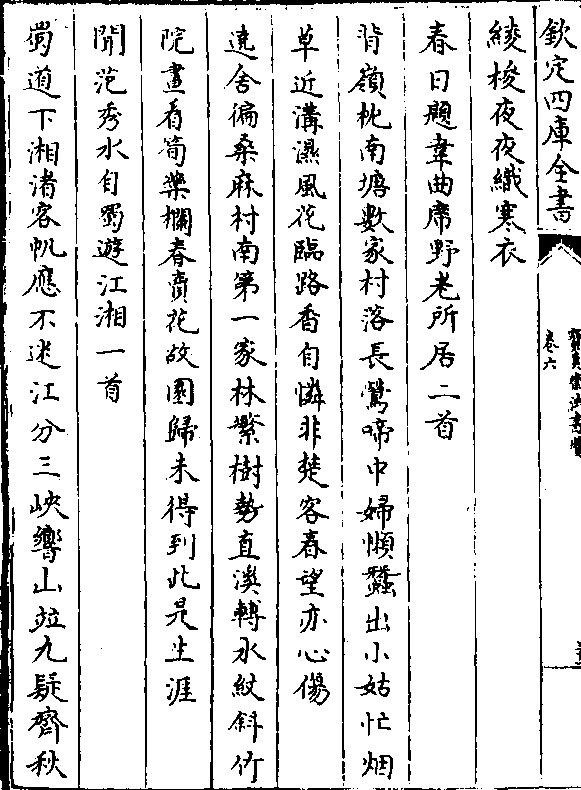 欽定四庫全書
卷六
綾梭夜夜織寒衣
春日題韋曲席野老所居二首
背嶺枕南塘數家村落長鶯啼中婦懶蠶出小姑忙烟
草近溝濕風花臨路香自憐非楚客春望亦心傷
遶舍徧桑麻村南第一家林繁樹勢直溪轉水紋斜竹
院晝看筍藥欄春賣花故園歸未得到此是生涯
聞范秀水自蜀遊江湘一首
蜀道下湘渚客帆應不迷江分三峽響山竝九疑齊秋